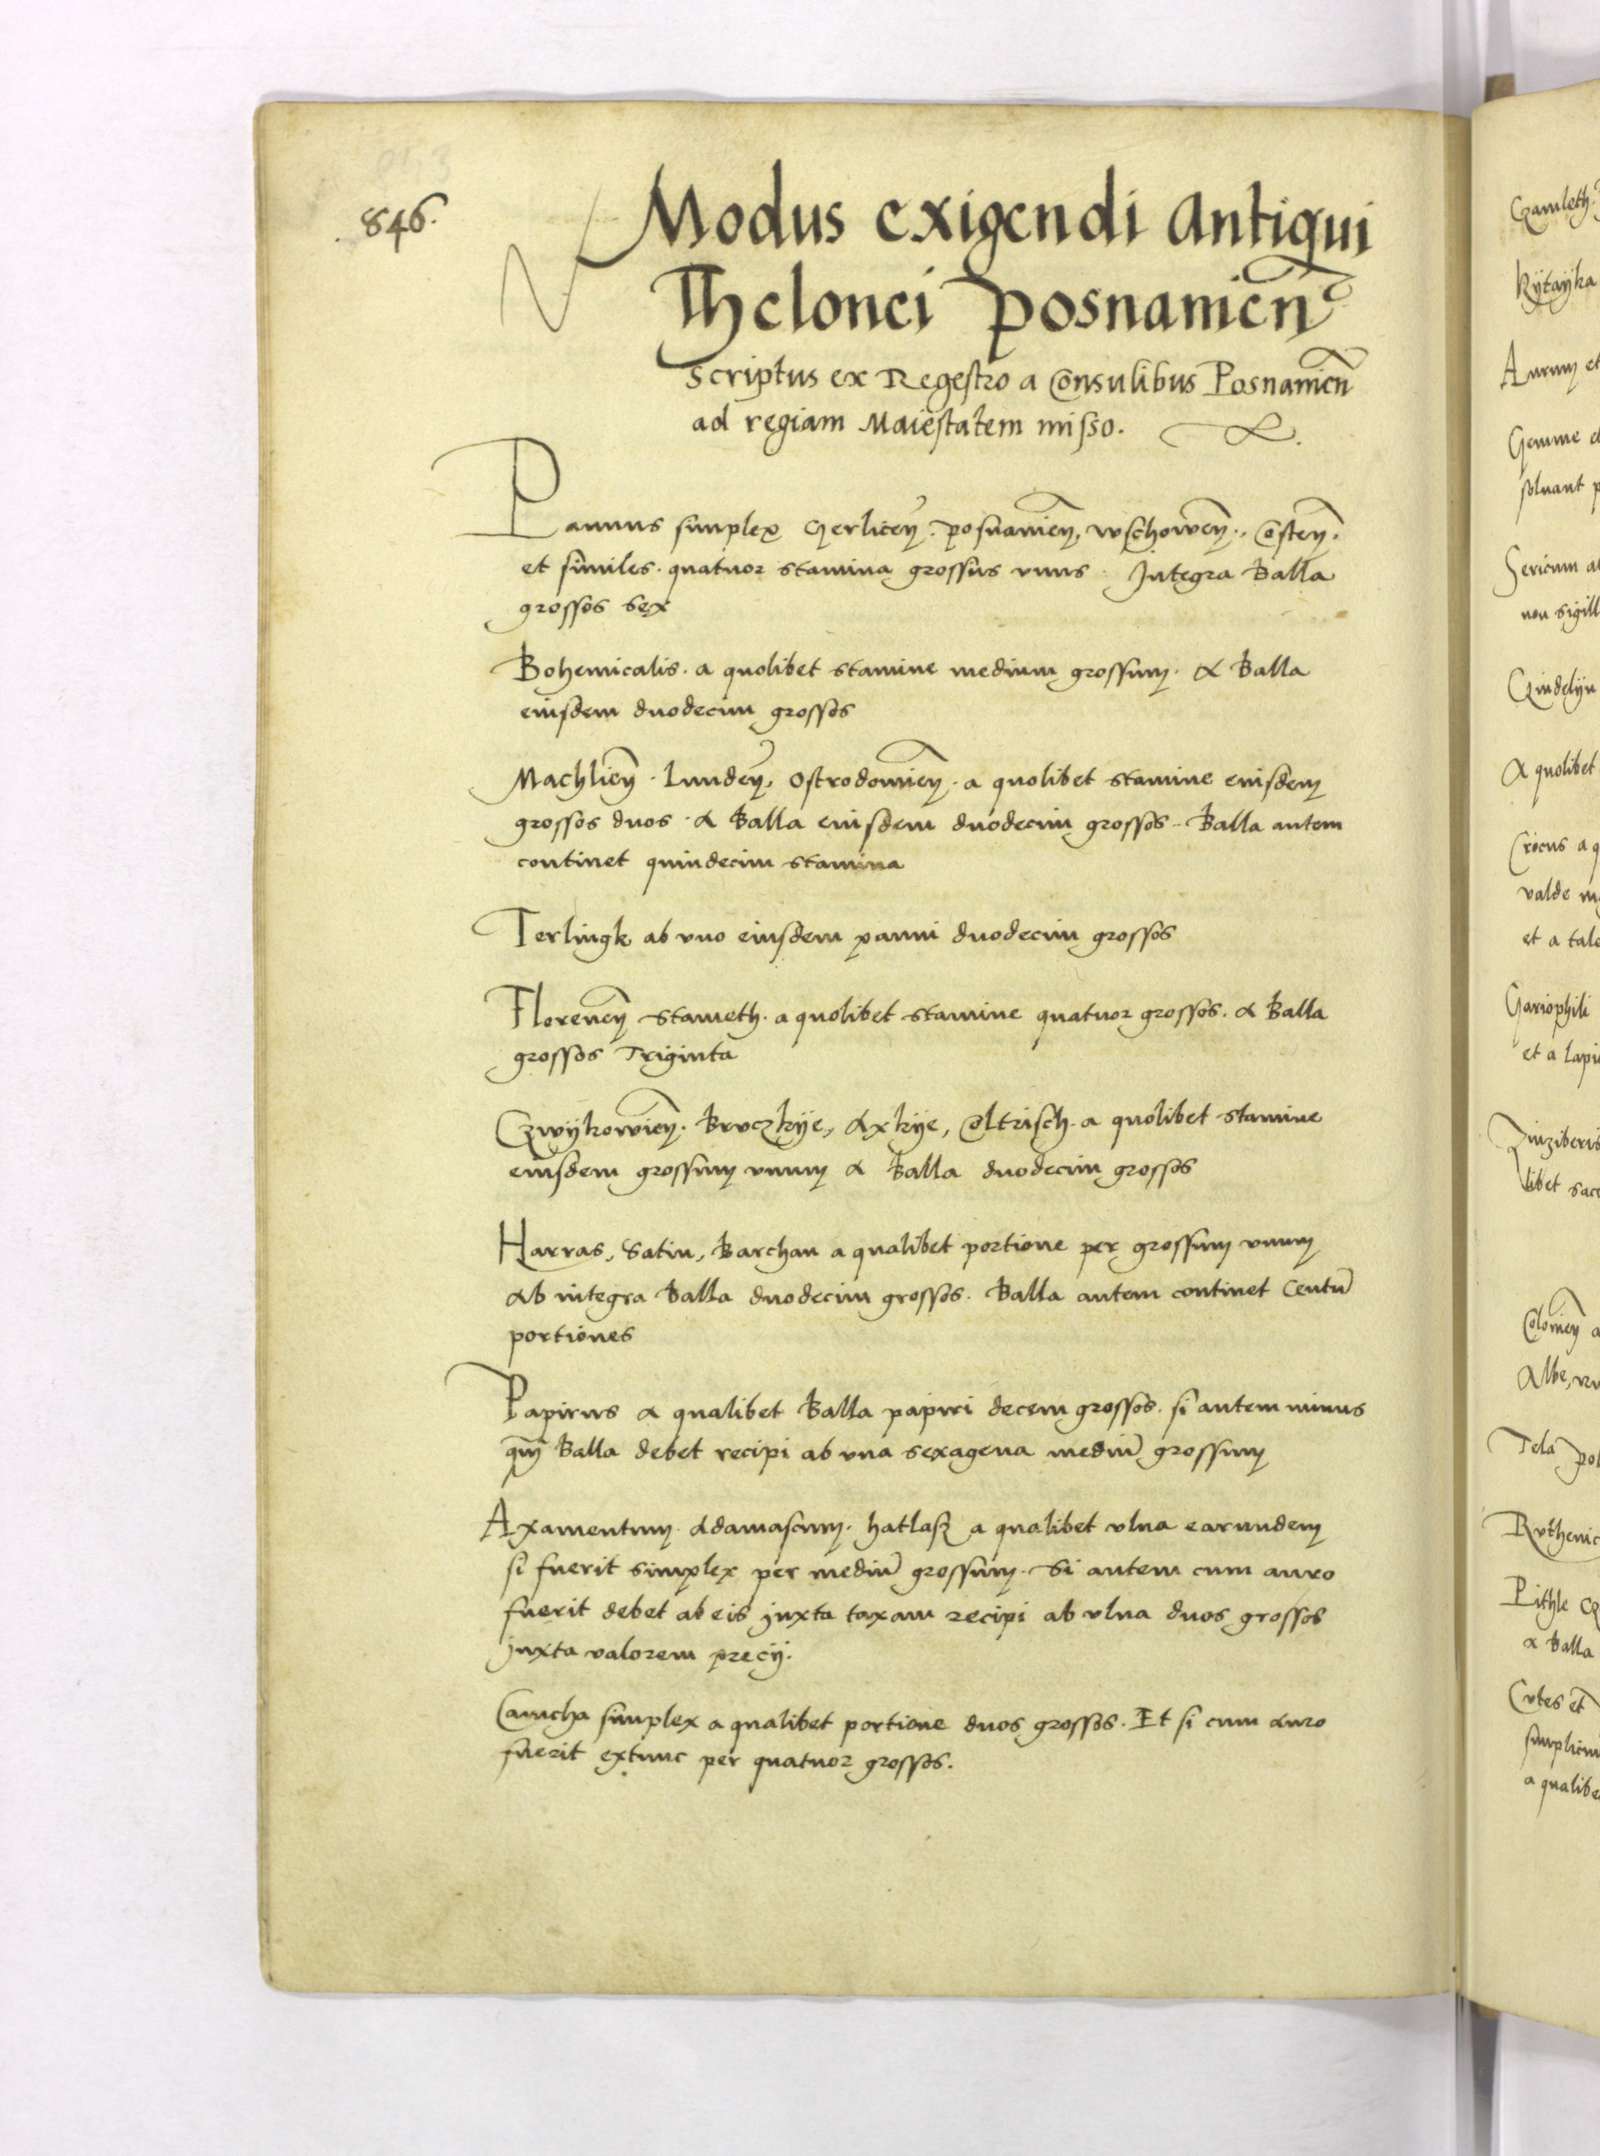 846.
Modus exigendi antiqui
Thelonei Posnanien̄
Scriptus ex Regestro a Consulibus Posnanien̄
ad regiam Maiestatem misso.
Pannus simplex Gerlicen̄. posnanien̄, wschowen̄., Costen̄.
et similes. quatuor stamina grossus vnus. Integra Balla
grossos sex
Bohemicalis. a quolibet stamine medium grossum. A Balla
eiusdem duodecim grossos
Machlien̄. Lunden̄, Ostrodomien̄. a quolibet stamine eiusdem
grossos duos. A Balla eiusdem duodecim grossos.. Balla autem
continet quindecim stamina
Terlingk ab vno eiusdem panni duodecim grossos
Florencn̄ stameth. a quolibet stamine quatuor grossos. A Balla
grossos Triginta
Czwÿkowien̄. Bruczkÿe, Axkÿe, Coltrisch. a quolibet stamine
eiusdem grossum vnum A Balla duodecim grossos
Harras, Satin, Barchan a qualibet portione per grossum vnum
Ab integra Balla duodecim grossos. Balla autem continet Centū
portiones
Papirus A qualibet Balla papiri decem grossos. si autem minus
qm̄ Balla debet recipi ab vna sexagena mediū grossum
Axamentum. Adamascum. hatlasz a qualibet vlna earundem
si fuerit simplex per mediū grossum. Si autem cum auro
fuerit debet ab eis juxta taxam recipi ab vlna duos grossos
juxta valorem precij.
Camcha simplex a qualibet portione duos grossos. Et si cum Auro
fuerit extunc per quatuor grossos.
Czamleth.
Kÿtaÿka
Aurum et
Gemme
soluant
Sericum
non sigill
Czindelÿn
A quolibet
Crocus a q
valde
et a tale
Gariophili
et a lapi
Zinziberis
libet sacc
Colonien̄ a
Albe,
Tela Pol
Ruthenic
Pithle
A Balla
Cutes et
simplicium
a qualibe